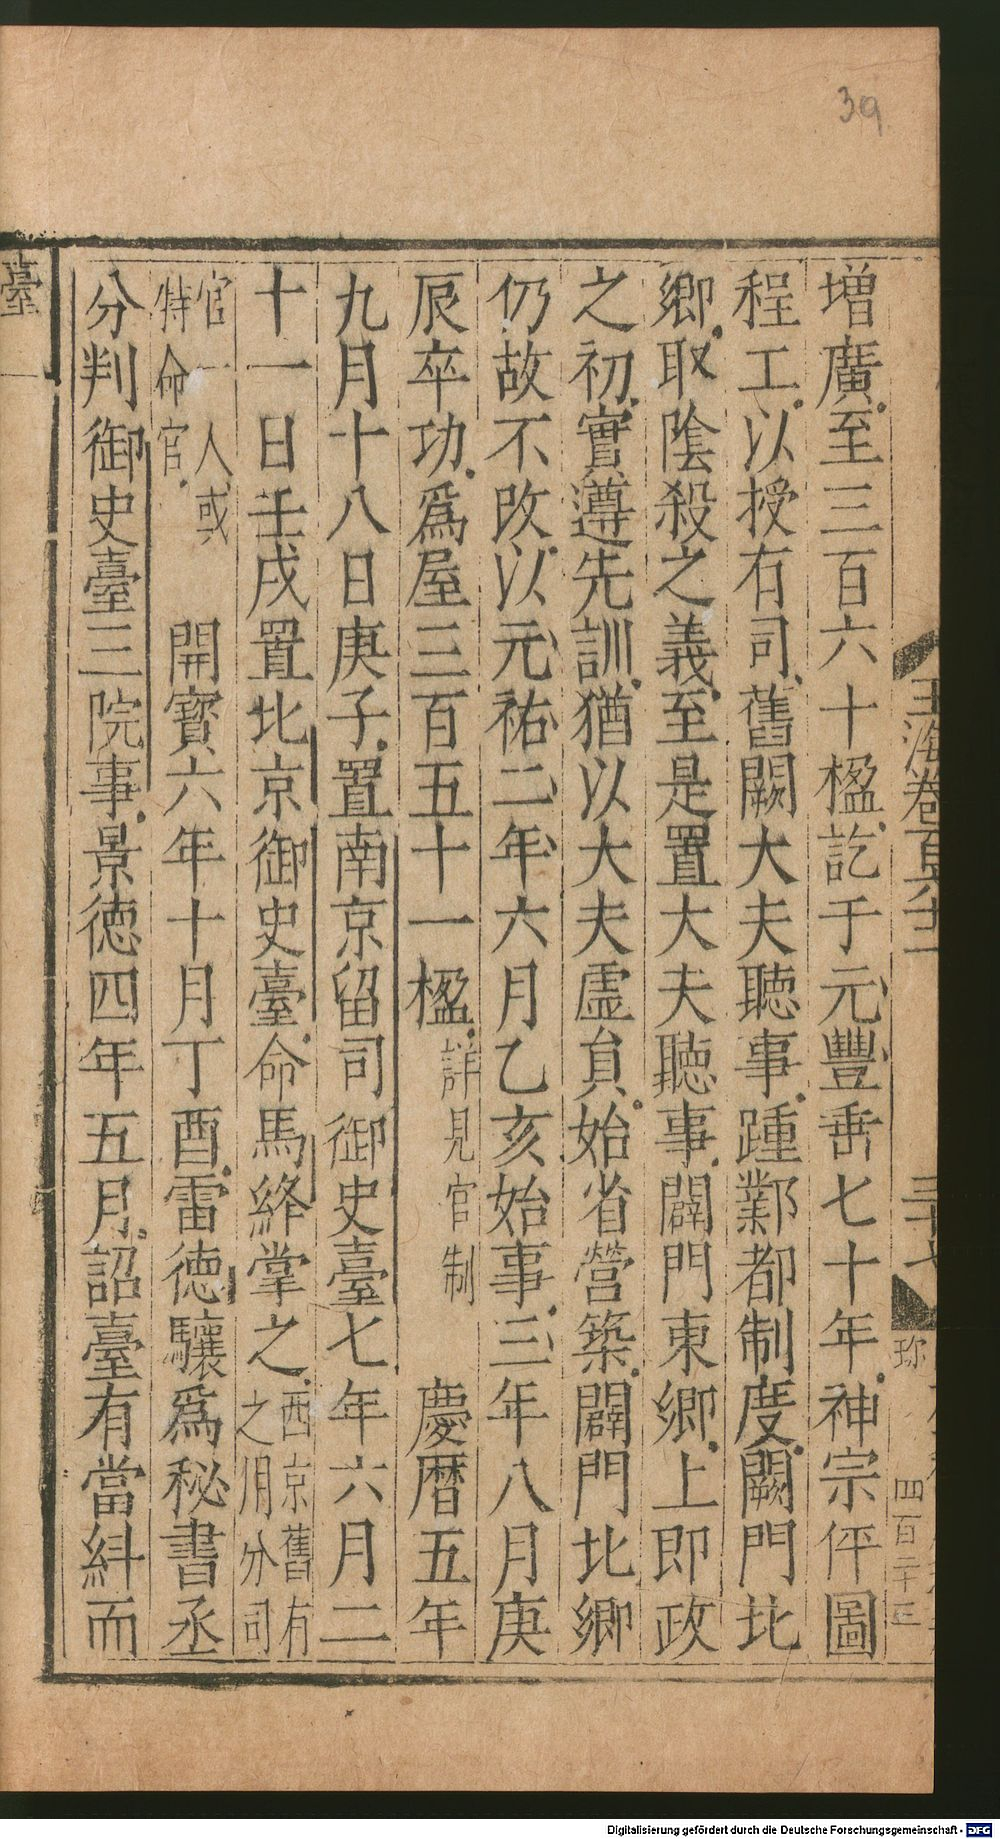 39
增廣至三百六十楹訖于元豐垂七十年神宗伻圖
程工以授有司舊闕大夫聽事踵鄴都制度闕門北
鄉取陰殺之義至是置大夫聽事闢門東鄉上即政
之初實遵先訓猶以大夫虛負始省營築闢門北鄉
仍故不改以元祐二年六月乙亥始事三年八月庚
辰卒功爲屋三百五十一楹詳見官制 慶曆五年
九月十八日庚子置南京留司御史臺七年六月二
十一日壬戌置北京御史臺命馬絳掌之西京舊有之用分司
官一人或特命官 開寶六年十月丁酉雷德驤爲秘書丞
分判御史臺三院事景德四年五月詔臺有當糾而
玉海卷百六十二
三十七
珎
四百二十五
臺
Digitalisierung gefördert durch die Deutsche Forschungsgemeinschaft - DFG